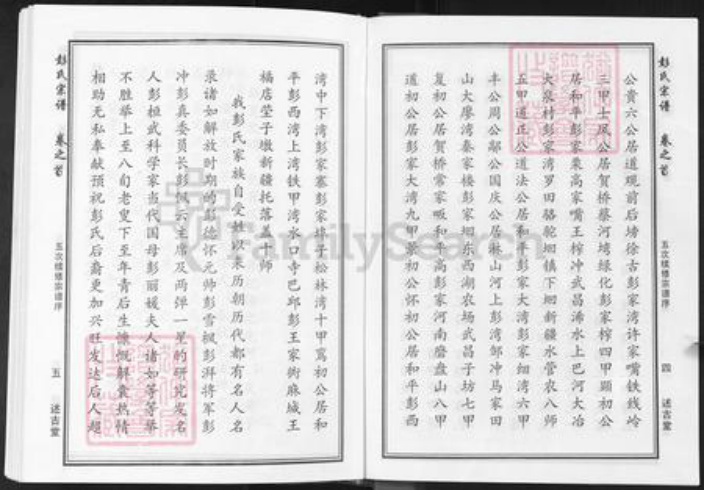 彭氏宗谱 卷之首
五次续修宗谱序
四 述古堂
公贵六公居道观前后塝徐古彭家湾许家嘴铁线岭
三甲士凤公居贺桥蔡河塆绿化彭家榨四甲顕初公
居和平彭家栗高家嘴王榨冲武昌浠水上巴河大冶
大泉村彭家湾罗田骆驼坳镇下坳新疆水管农八师
五甲道正公道法公居和平彭家大湾彭家细湾六甲
丰公周公鄰公国庆公居淋山河上彭湾邹冲马家田
山大廖湾秦家楼彭家坳东西湖农场武昌子坊七甲
复初公居贺桥常家畈和平高彭家河南磨盘山八甲
道初公居彭家大湾九甲景初公怀初公居和平彭西
湾中下湾彭家寨彭家樟子松林湾十甲寫初公居和
平彭西湾上湾铁甲湾水口寺巴邱彭王家衖麻城王
福店茔子墩新疆托落盖十师
我彭氏家族自受姓以来历朝历代都有名人名
录诸如解放时期的彭德怀元帅彭雪枫彭湃将军彭
冲彭真委员长彭佩云主席及两弹一星的研究发名
人彭桓武科学家当代国母彭丽媛夫人诸如等等举
不胜举上至八旬老叟下至年青后生慷慨解囊热情
相助无私奉献预祝彭氏后裔更加兴旺发达后人超
彭氏宗谱 卷之首
五次续修宗谱序
五 述古堂
FamilySearch